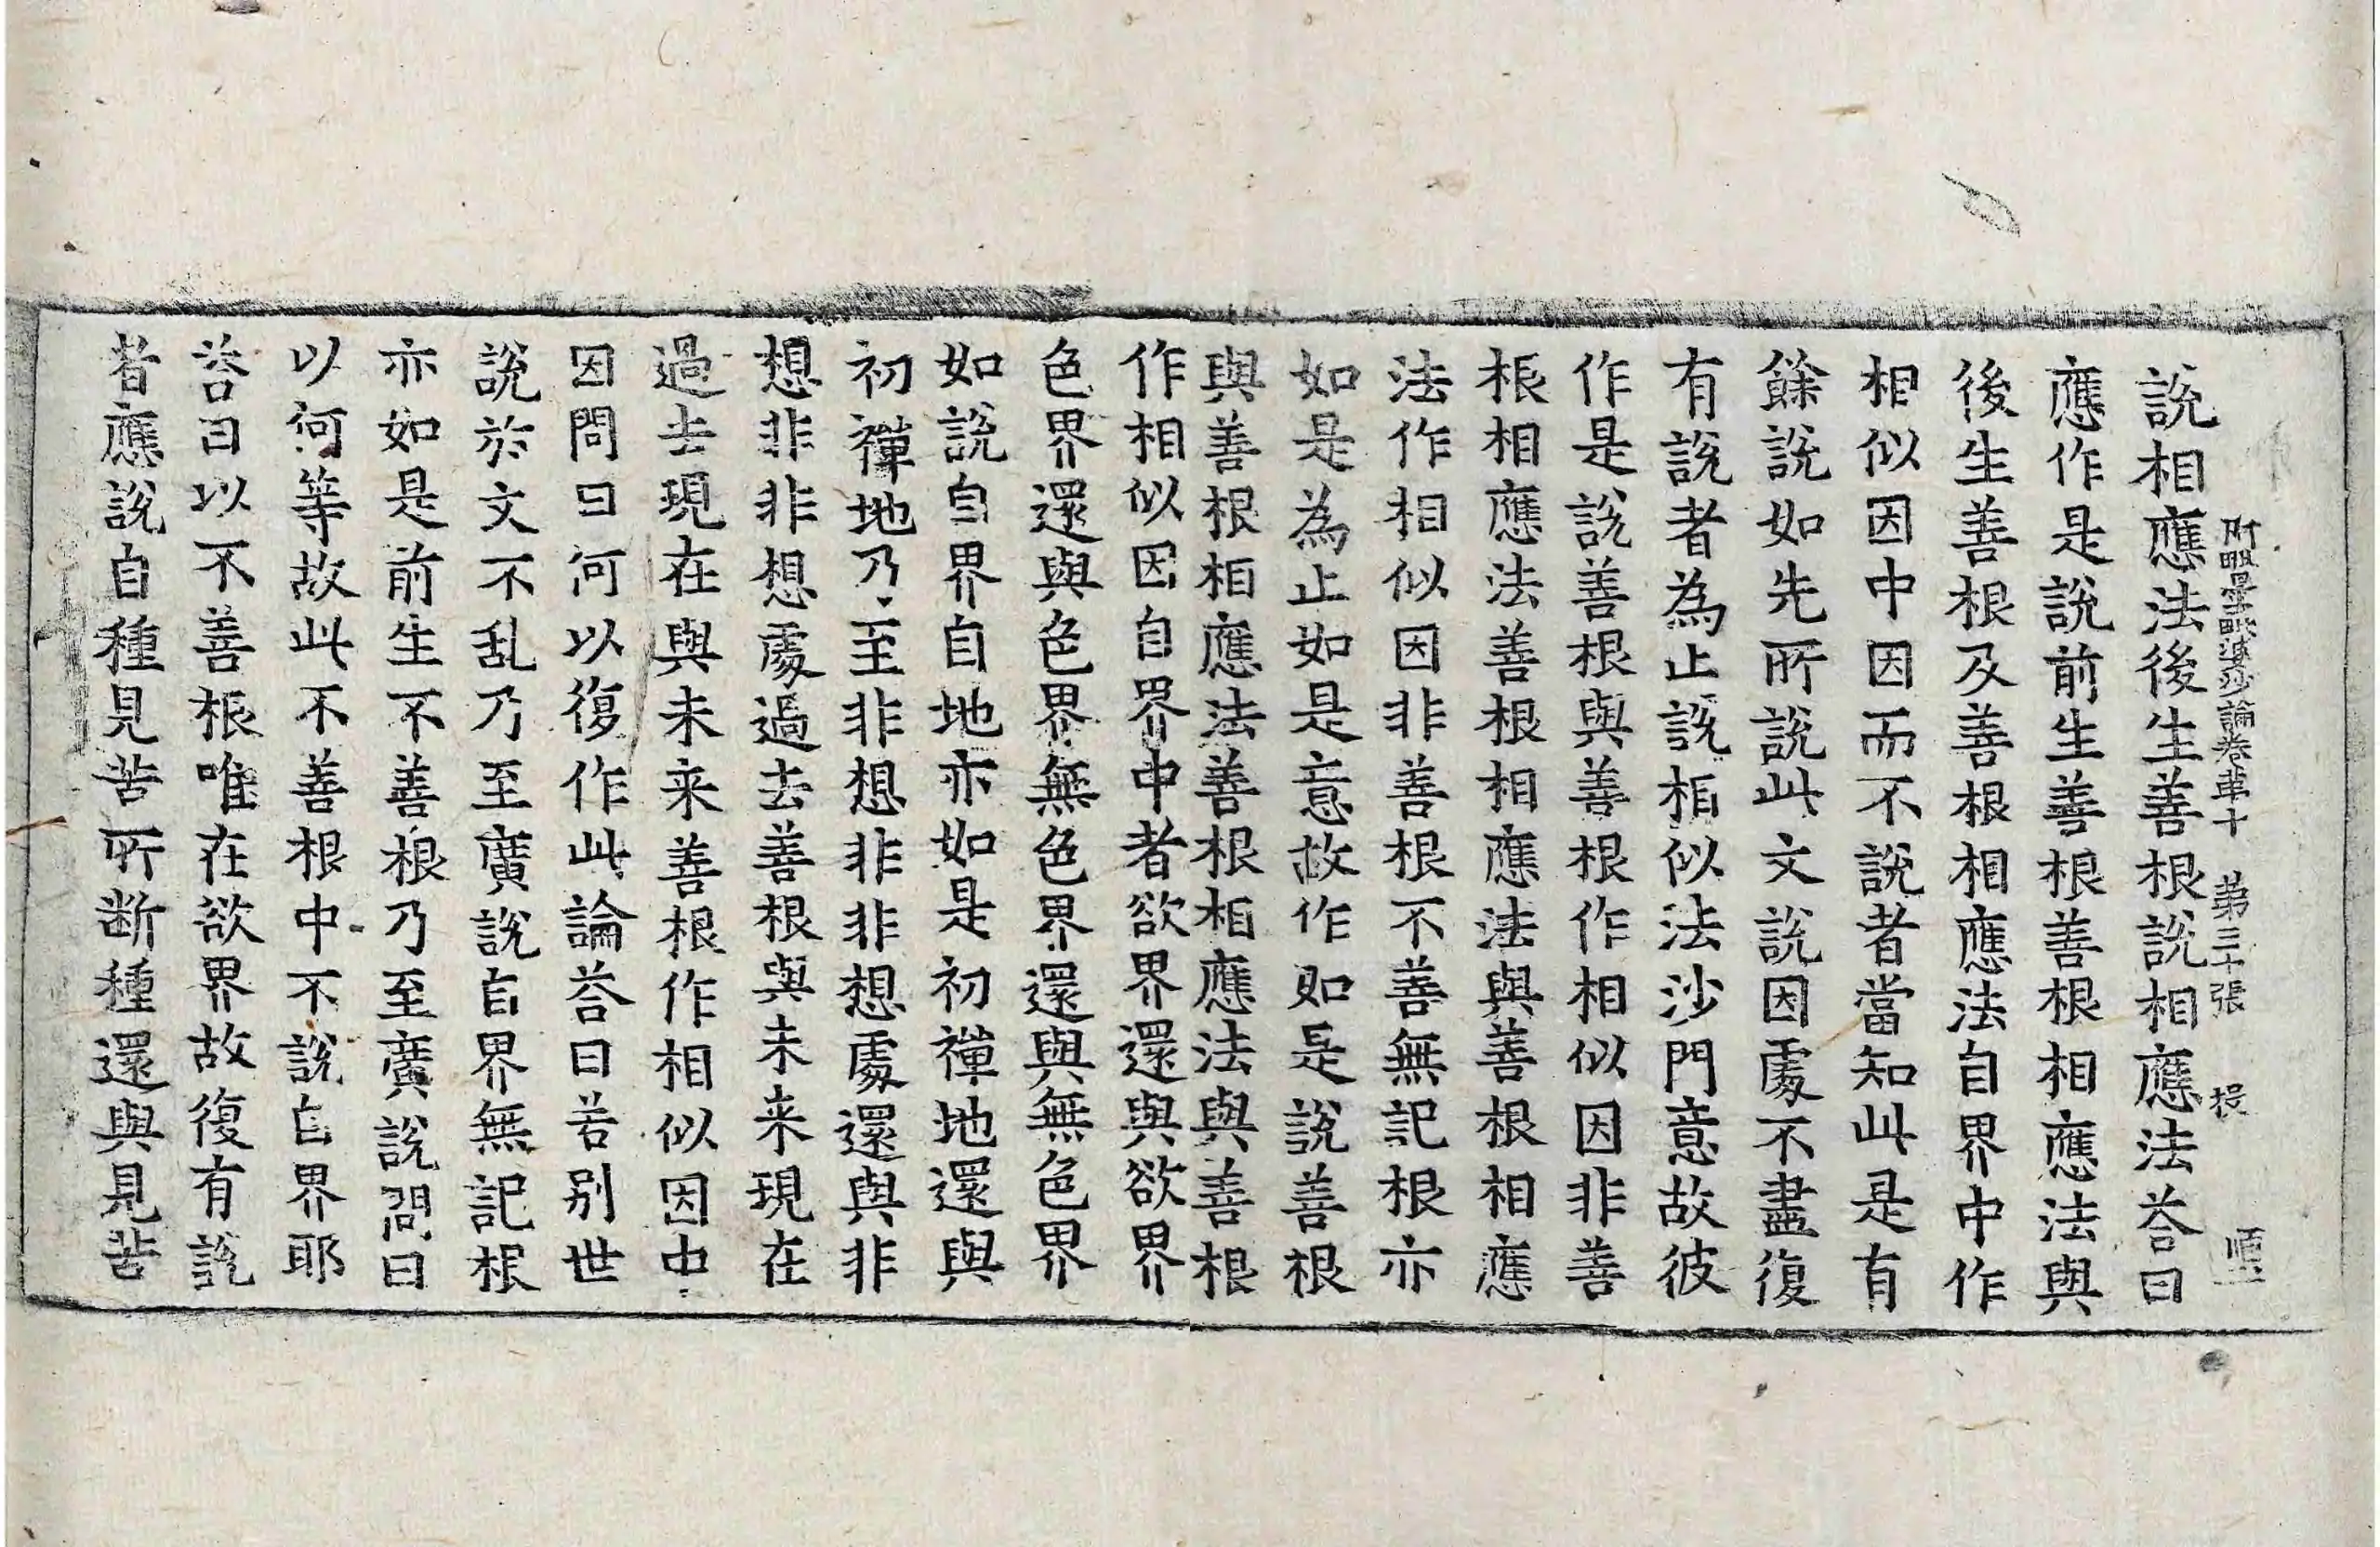 阿毗曇毗婆沙論卷第十 第三十張 投 順
說相應法後生善根說相應法荅曰
應作是說前生善根善根相應法與
後生善根及善根相應法自界中作
相似因中因而不說者當知此是有
餘說如先所說此文說因處不盡復
有說者為止說相似法沙門意故彼
作是說善根與善根作相似因非善
根相應法善根相應法與善根相應
法作相似因非善根不善無記根亦
如是為止如是意故作如是說善根
與善根相應法善根相應法與善根
作相似因自界中者欲界還與欲界
色界還與色界無色界還與無色界
如說自界自地亦如是初禪地還與
初禪地乃至非想非非想處還與非
想非非想處過去善根與未來現在
過去現在與未来善根作相似因中
因問曰何以復作此論荅曰若別世
說於文不乱乃至廣說自界無記根
亦如是前生不善根乃至廣說問曰
以何等故此不善根中不說自界耶
荅曰以不善根唯在欲界故復有說
者應說自種見苦所断種還與見苦